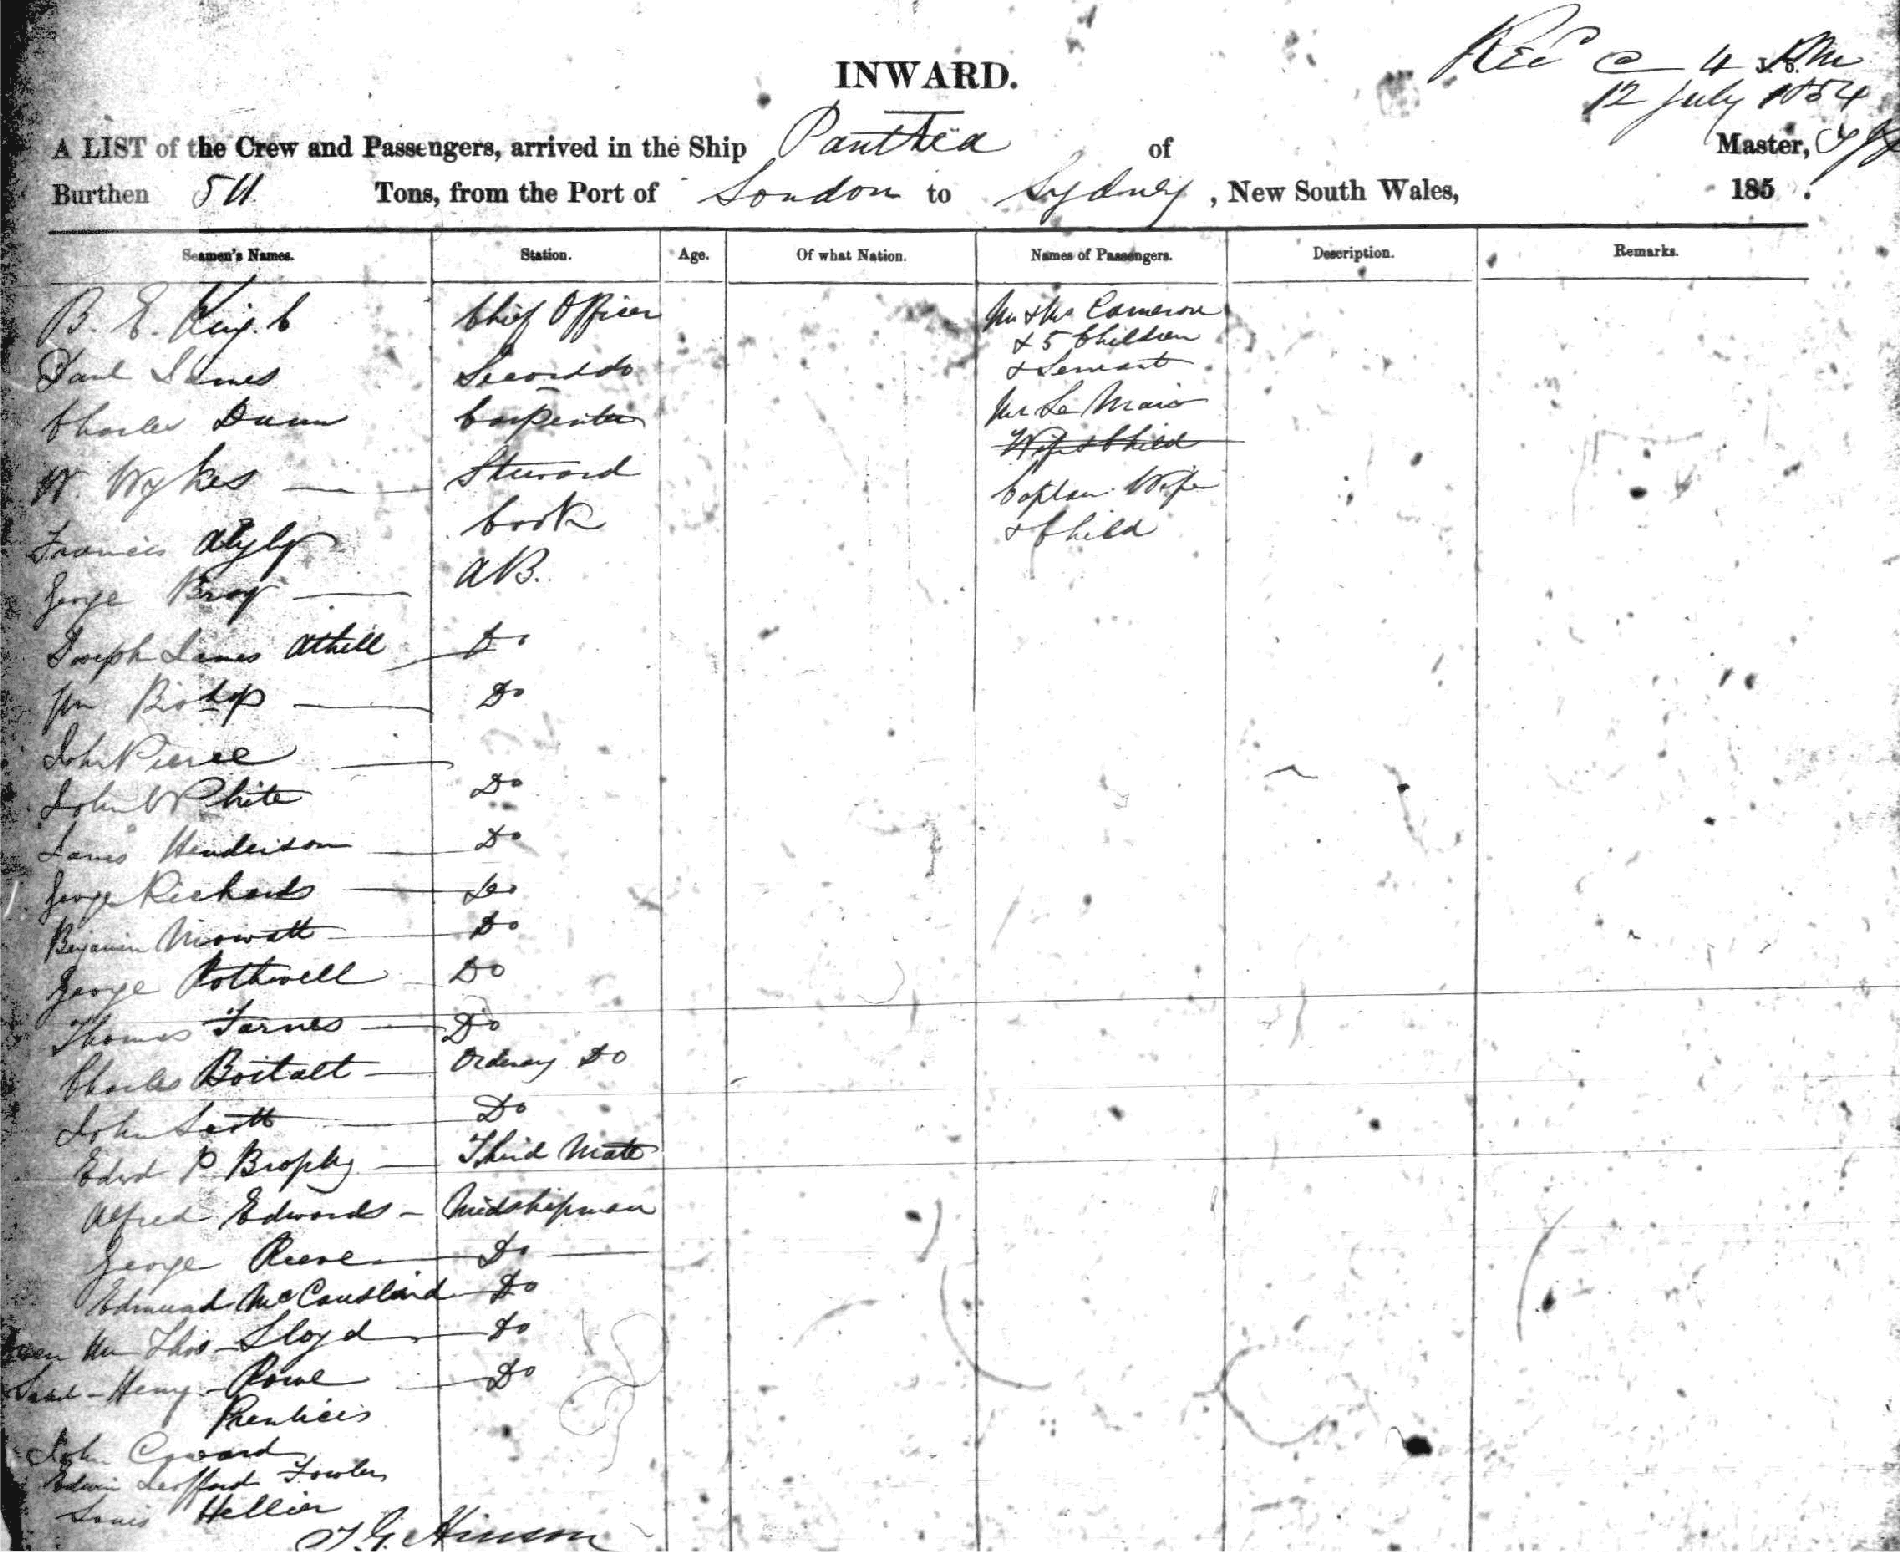 Recd @ 4 PM
J. B.
12 July 1854
INWARD.
A LIST of the Crew and Passengers, arrived in the Ship Panthea of Master,
Burthen 511 Tons, from the Port of London to Sydney, New South Wales, 185 .
Seamen's Names. Station. Age. Of what Nation. Names of Passengers. Description. Remarks.
B. E. Chief Officer Mr & Mrs Cameron
& 5 Children
Paul James Second do & Servant
Charles Dunn Carpenter Mr Le
Wife & Child
W. Wykes Steward Captain Wife
Francis Cook & Child
George Bray A B.
Joseph James Athill Do
Wm Bishop Do
John Pierce
John White Do
James Henderson Do
George Richards Do
Benjamin Mowatt Do
George Rothwell Do
Thomas Do
Charles Ordinary Do
John Scott Do
Edwd P Brophy Third Mate
Alfred Edwards Midshipman
George Reeve Do
Edmund McCausland Do
Wm Thos Lloyd Do
Saml Henry Rowe Do
Prentices
John Coward
Edwin Fowler
Louis Hellier